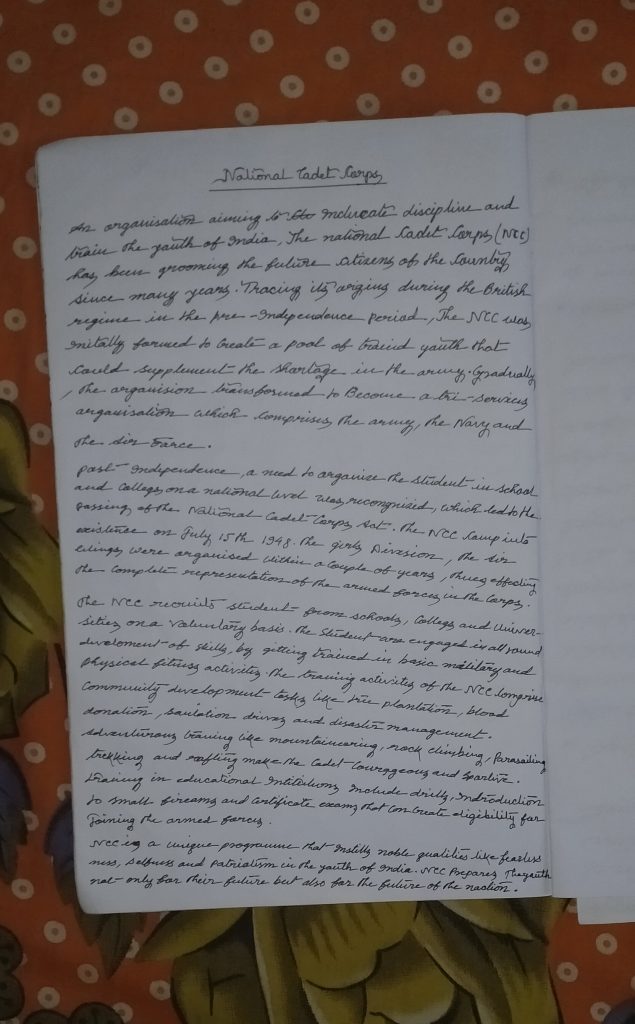 National Cadet Corps
An organisation aiming to Inducate discipline and
train the youth of India, The national Cadet Corps (NCC)
has been grooming the future citizens of the Country
since many years. Tracing its orgins during the British
regime in the pre-Independence period, The NCC was
Initally formed to create a pool of traind youth that
Could supplement the shortage in the army. Gradually
, the organision transformed to Become a tri-services
organisation which Comprises the army, the Navy and
the Air Force.
Post Independence, a need to organise the student in school
and College on a national level was recognised, which led to the
passing of the National Cadet Corps Act. The NCC Camp into
existence on July 15th 1948. The girls Division, the Air
wings were organised within a couple of years, thus effecting
the complete representation of the armed forces in the Corps.
The NCC recruits student from schools, College and Univer-
sities on a voluntary basis. The student are engaged in all round
develoment of skills, by getting trained in basic military and
physical fitness activities. The training activities of the NCC Comprise
Community development tasks like tree plantation, blood
donation, sanitation drives and disaster management.
Adventurous training like mountainearing, rock climbing, Parasailing
trekking and rafting make the Cadet Courageous and sportive.
training in educational Intitutions Include drills, Indroduction
to small firearms and certificate exams that can create eligibility for
Joining the armed forces.
NCC is a unique programme that Instills noble qualities like fearless
ness, and patriotism in the youth of India. NCC Prepares The youth
not only for their future but also for the future of the naction.